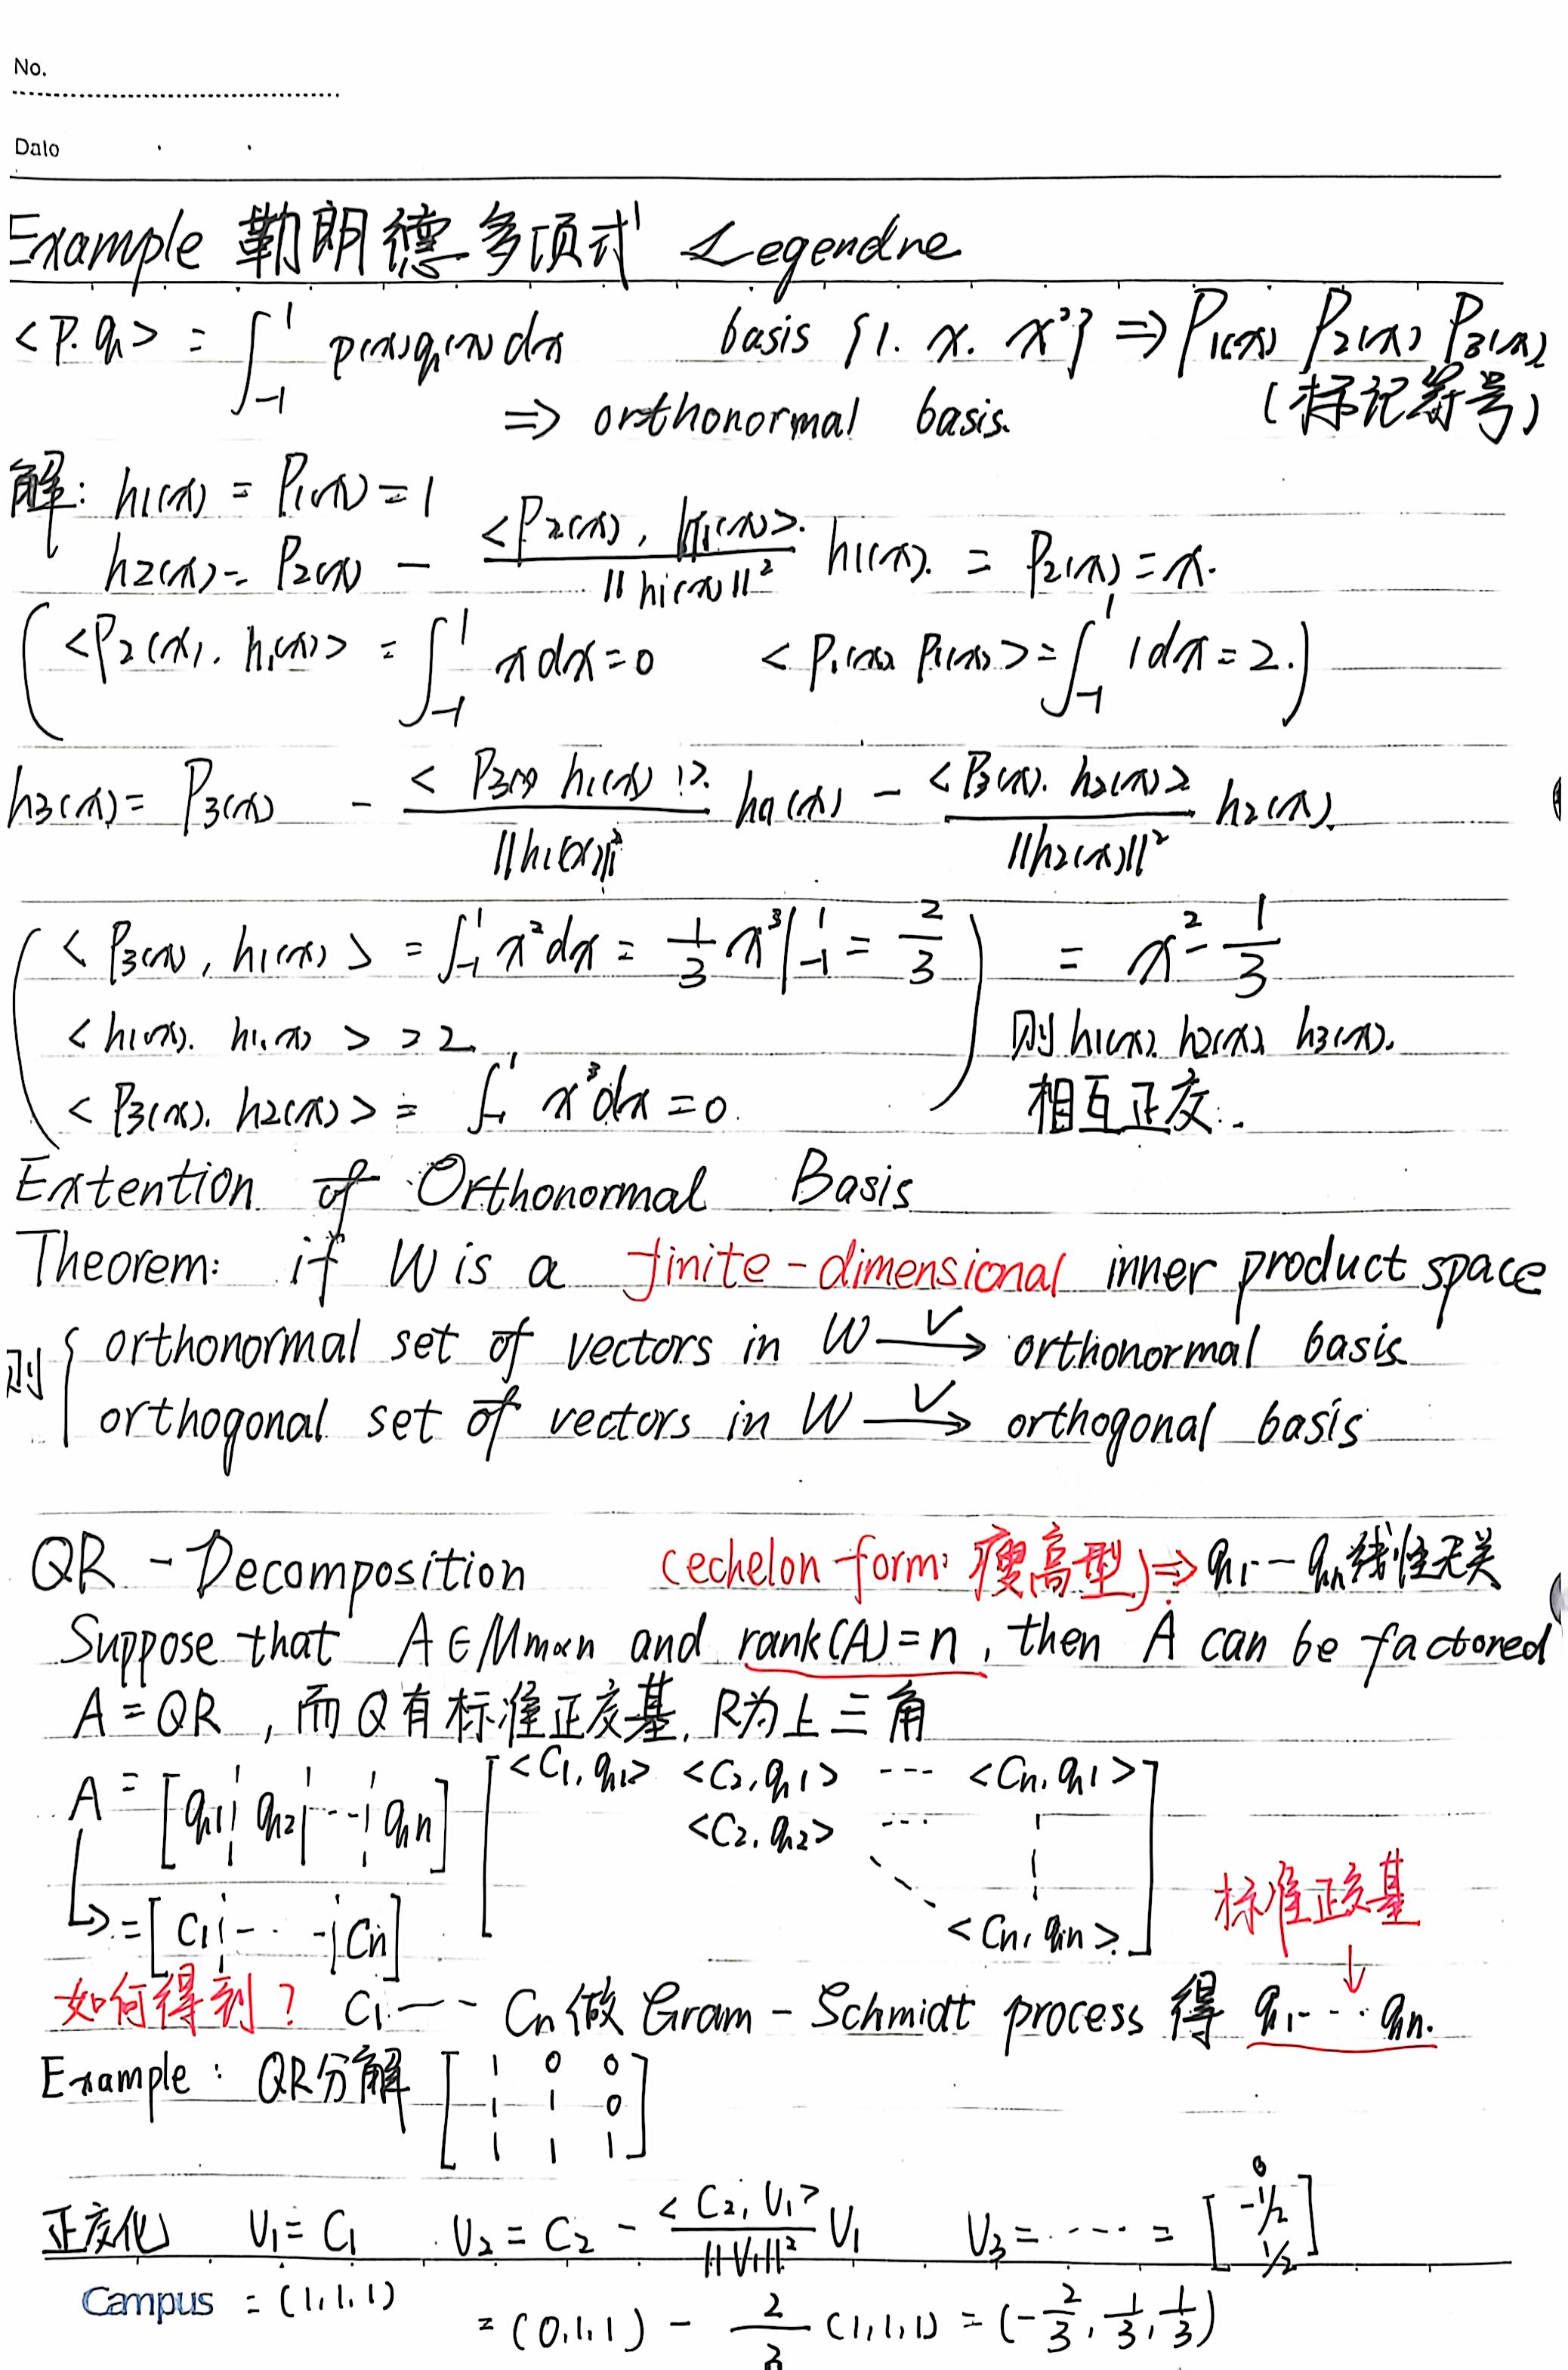 No.
Date
Example 勒朗德多项式 Legendre
<P.q> = ∫_{-1}^{1} p(x)q(x)dx basis {1. x. x²} ⇒ P₁(x) P₂(x) P₃(x)
⇒ orthonormal basis. (标记符号)
解: h₁(x) = P₁(x) = 1
h₂(x) = P₂(x) - <P₂(x), h₁(x)>/||h₁(x)||² h₁(x). = P₂(x) = x.
( <P₂(x), h₁(x)> = ∫_{-1}^{1} x dx = 0 <P₁(x), P₁(x)> = ∫_{-1}^{1} 1 dx = 2. )
h₃(x) = P₃(x) - <P₃(x) h₁(x)>/||h₁(x)||² h₁(x) - <P₃(x). h₂(x)>/||h₂(x)||² h₂(x).
( <P₃(x), h₁(x)> = ∫_{-1}^{1} x²dx = 1/3 x³|_{-1}^{1} = 2/3 ) = x² - 1/3
<h₁(x). h₁(x)> = 2 则 h₁(x). h₂(x). h₃(x).
<P₃(x). h₂(x)> = ∫_{-1}^{1} x³dx = 0. 相互正交.
Extention of Orthonormal Basis
Theorem: if W is a finite-dimensional inner product space
则 { orthonormal set of vectors in W —√→ orthonormal basis
orthogonal set of vectors in W —√→ orthogonal basis
QR - Decomposition (echelon form: 瘦高型) ⇒ q₁ -- qₙ 线性无关
Suppose that A ∈ Mm×n and rank(A) = n, then A can be factored
A = QR, 而 Q 有标准正交基, R为上三角
A = [q₁ ¦ q₂ ¦ --- ¦ qₙ] [<C₁, q₁> <C₂, q₁> --- <Cₙ, q₁>
<C₂, q₂> ---
↳ = [C₁ ¦ --- ¦ Cₙ] <Cₙ, qₙ>] 标准正交基
如何得到? C₁ -- Cₙ 做 Gram - Schmidt process 得 q₁ --- qₙ.
Example: QR分解 [ 1 0 0
1 1 0
1 1 1 ]
正交化 V₁ = C₁ V₂ = C₂ - <C₂, V₁>/||V₁||² V₁ V₃ = ---- = [0 -1/2 1/2]
Campus = (1,1,1)
= (0,1,1) - 2/3 (1,1,1) = (-2/3, 1/3, 1/3)